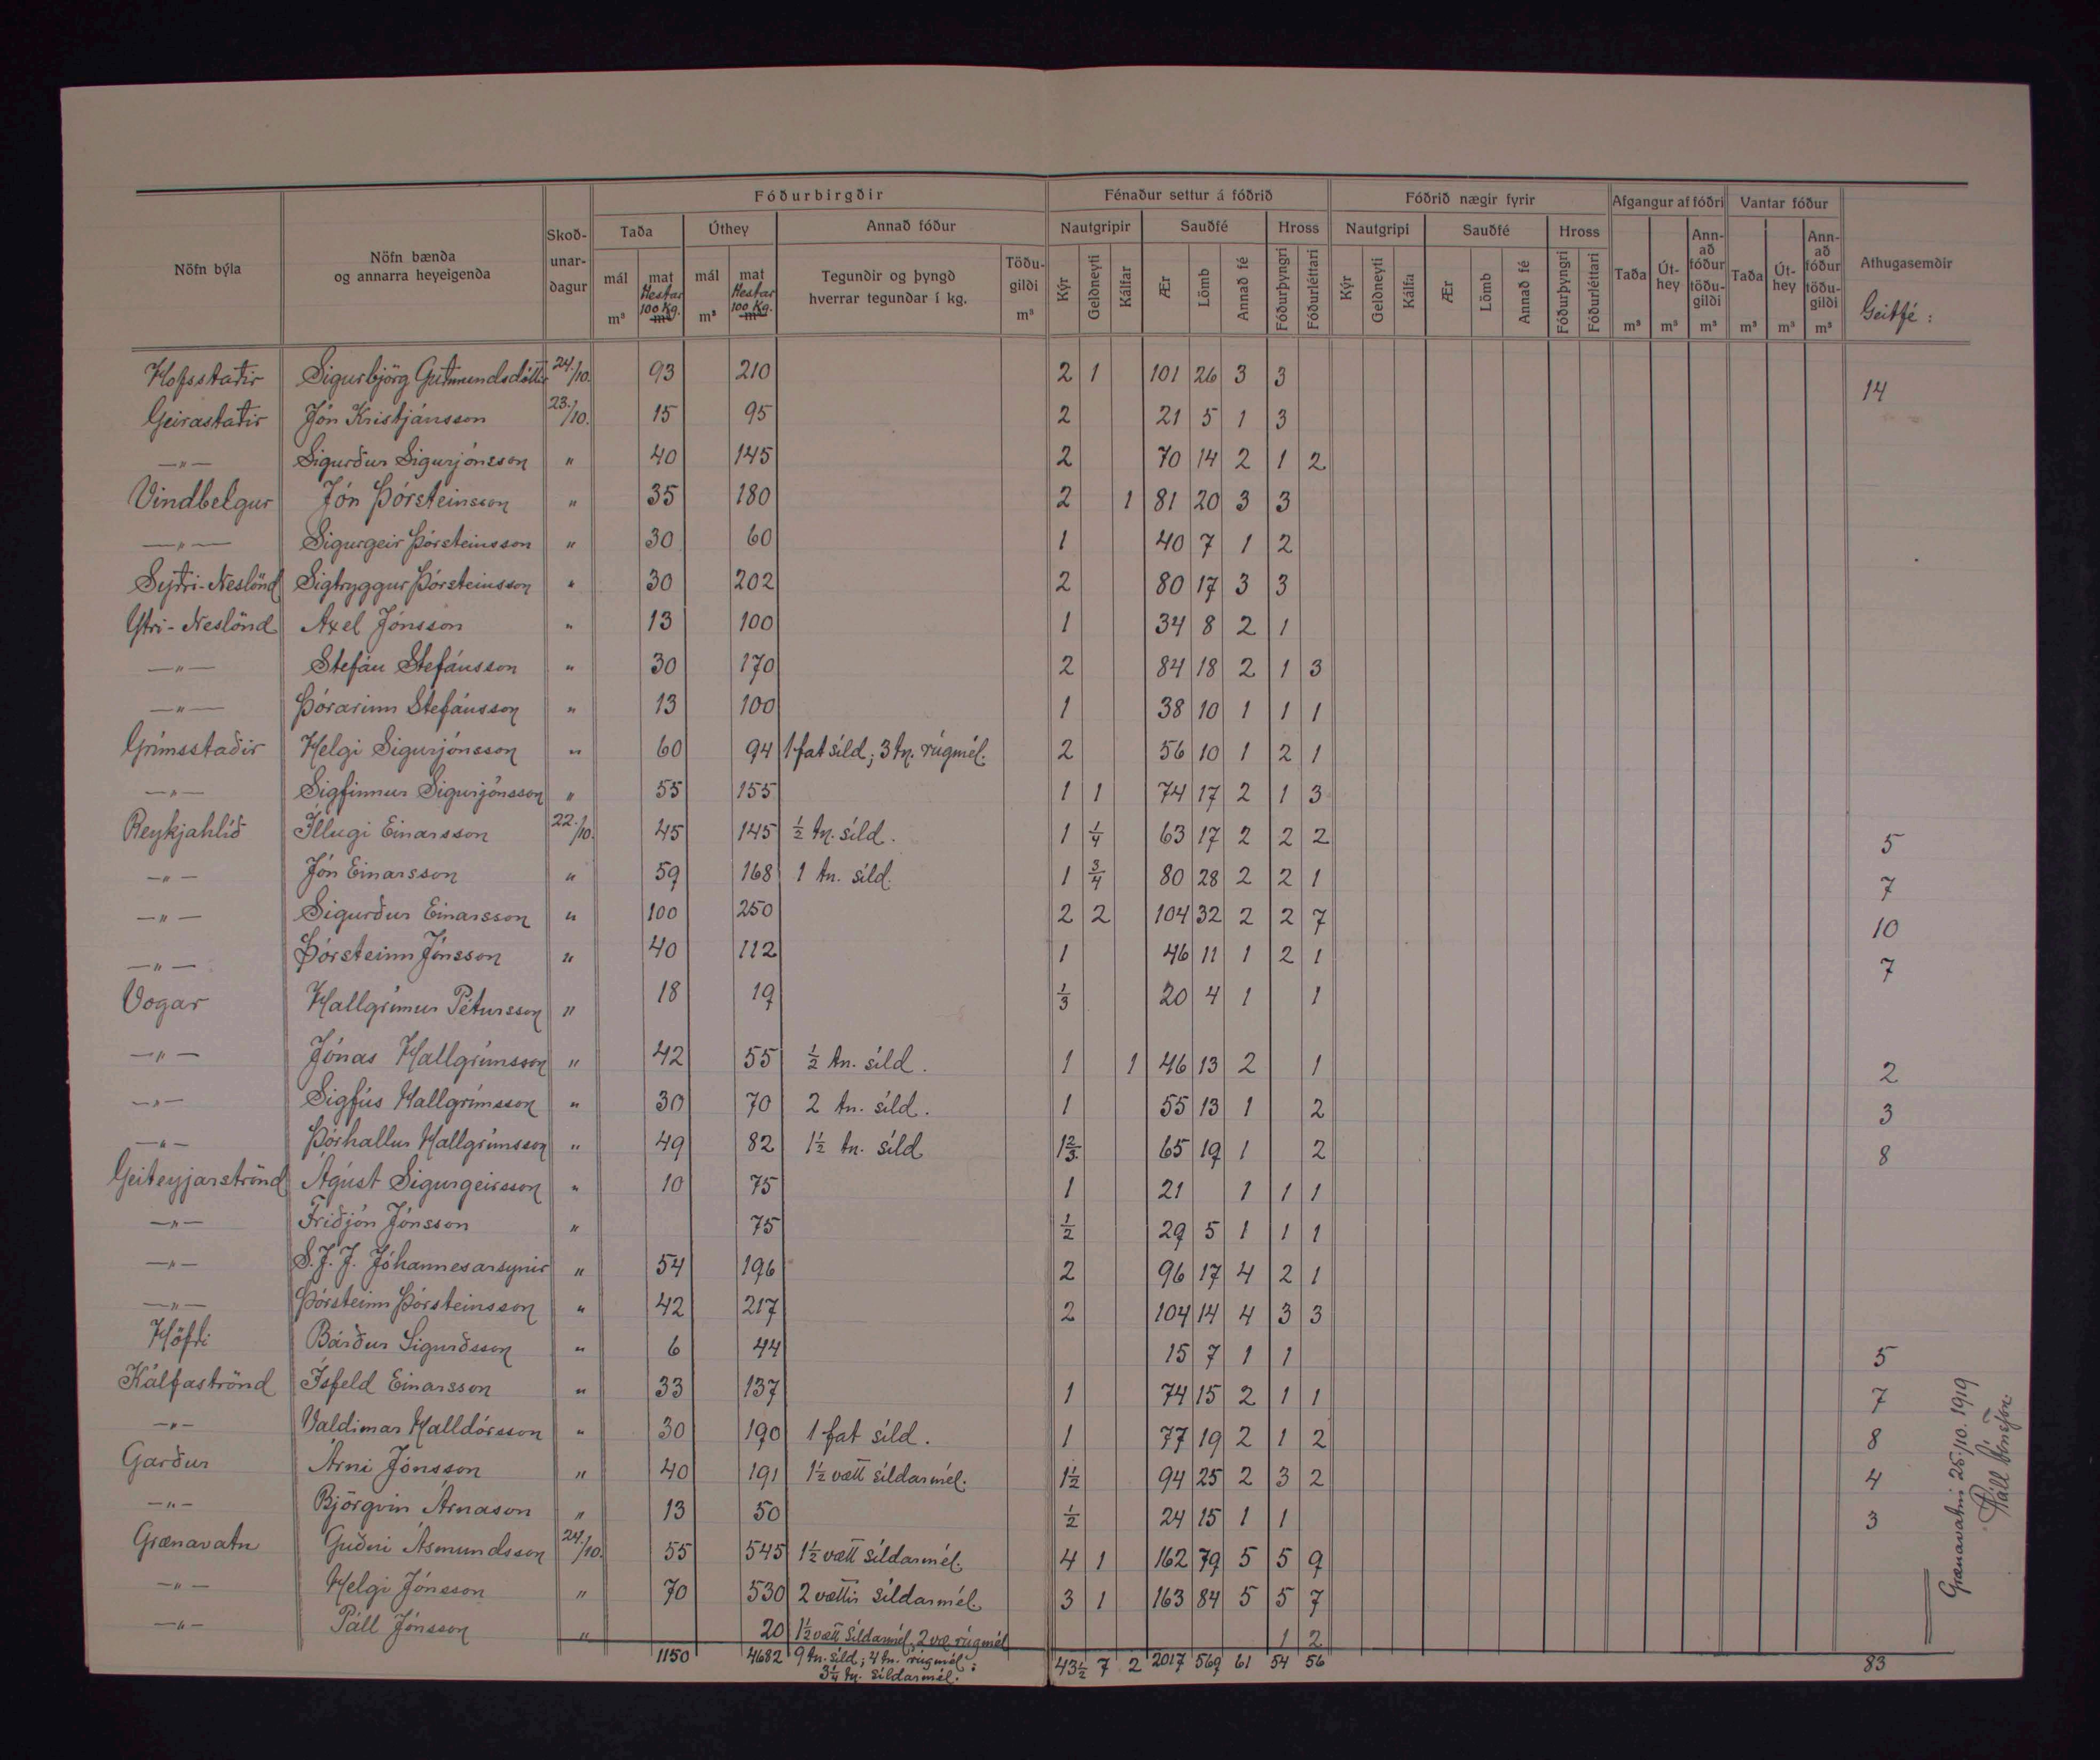 Fóðurbirgðir | Fénaður settur á fóðrið | Fóðrið nægir fyrir | Afgangur af fóðri | Vantar fóður
Nöfn býla | Nöfn bænda og annarra heyeigenda | Skoð-unar-dagur | Taða | Úthey | Annað fóður | Nautgripir | Sauðfé | Hross | Nautgripi | Sauðfé | Hross | Taða m³ | Út-hey m³ | Ann-að fóður töðu-gildi m³ | Taða m³ | Út-hey m³ | Ann-að fóður töðu-gildi m³ | Athugasemdir
mál m³ | mat Hestar 100 Kg. m³ | mál m³ | mat Hestar 100 Kg. m³ | Tegundir og þyngd hverrar tegundar í kg. | Töðu-gildi m³ | Kýr | Geldneyti | Kálfar | Ær | Lömb | Annað fé | Fóðurþyngri | Fóðurléttari | Kýr | Geldneyti | Kálfa | Ær | Lömb | Annað fé | Fóðurþyngri | Fóðurléttari | Geitfé:
Hofsstaðir | Sigurbjörg Guðmundsdóttir | 24./10. | 93 | 210 | 2 | 1 | 101 | 26 | 3 | 3 | 14
Geirastaðir | Jón Kristjánsson | 23./10. | 15 | 95 | 2 | 21 | 5 | 1 | 3
—"— | Sigurður Sigurjónsson | " | 40 | 145 | 2 | 70 | 14 | 2 | 1 | 2
Vindbelgur | Jón Þórsteinsson | " | 35 | 180 | 2 | 1 | 81 | 20 | 3 | 3
—"— | Sigurgeir Þórsteinsson | " | 30 | 60 | 1 | 40 | 7 | 1 | 2
Syðri-Neslönd | Sigtryggur Þórsteinsson | " | 30 | 202 | 2 | 80 | 17 | 3 | 3
Ytri-Neslönd | Axel Jónsson | " | 13 | 100 | 1 | 34 | 8 | 2 | 1
—"— | Stefán Stefánsson | " | 30 | 170 | 2 | 84 | 18 | 2 | 1 | 3
—"— | Þórarinn Stefánsson | " | 13 | 100 | 1 | 38 | 10 | 1 | 1 | 1
Grímsstaðir | Helgi Sigurjónsson | " | 60 | 94 | 1 fat síld; 3 tn. rúgmél. | 2 | 56 | 10 | 1 | 2 | 1
—"— | Sigfinnur Sigurjónsson | " | 55 | 155 | 1 | 1 | 74 | 17 | 2 | 1 | 3
Reykjahlíð | Illugi Einarsson | 22./10. | 45 | 145 | ½ tn. síld. | 1 | ¼ | 63 | 17 | 2 | 2 | 2 | 5
—"— | Jón Einarsson | " | 59 | 168 | 1 tn. síld. | 1 | ¾ | 80 | 28 | 2 | 2 | 1 | 7
—"— | Sigurður Einarsson | " | 100 | 250 | 2 | 2 | 104 | 32 | 2 | 2 | 7 | 10
—"— | Þórsteinn Jónsson | " | 40 | 112 | 1 | 46 | 11 | 1 | 2 | 1 | 7
Vogar | Hallgrímur Pétursson | " | 18 | 19 | ⅓ | 20 | 4 | 1 | 1
—"— | Jónas Hallgrímsson | " | 42 | 55 | ½ tn. síld. | 1 | 1 | 46 | 13 | 2 | 1 | 2
—"— | Sigfús Hallgrímsson | " | 30 | 70 | 2 tn. síld. | 1 | 55 | 13 | 1 | 2 | 3
—"— | Þórhallur Hallgrímsson | " | 49 | 82 | 1½ tn. síld | 1⅔ | 65 | 19 | 1 | 2 | 8
Geiteyjarströnd | Ágúst Sigurgeirsson | " | 10 | 75 | 1 | 21 | 1 | 1 | 1
—"— | Friðjón Jónsson | " | 75 | ½ | 29 | 5 | 1 | 1 | 1
—"— | S. J. J. Jóhannesarsynir | " | 54 | 196 | 2 | 96 | 17 | 4 | 2 | 1
—"— | Þórsteinn Þórsteinsson | " | 42 | 217 | 2 | 104 | 14 | 4 | 3 | 3
Höfði | Bárður Sigurðsson | " | 6 | 44 | 15 | 7 | 1 | 1 | 5
Kálfaströnd | Ísfeld Einarsson | " | 33 | 137 | 1 | 74 | 15 | 2 | 1 | 1 | 7
—"— | Valdimar Halldórsson | " | 30 | 190 | 1 fat síld. | 1 | 77 | 19 | 2 | 1 | 2 | 8
Garður | Árni Jónsson | " | 40 | 191 | 1½ vætt síldarmél. | 1½ | 94 | 25 | 2 | 3 | 2 | 4
—"— | Björgvin Árnason | " | 13 | 50 | ½ | 24 | 15 | 1 | 1 | 3
Grænavatn | Guðni Ásmundsson | 24./10. | 55 | 545 | 1½ vætt síldarmél. | 4 | 1 | 162 | 79 | 5 | 5 | 9
—"— | Helgi Jónsson | " | 70 | 530 | 2 vættir síldarmél. | 3 | 1 | 163 | 84 | 5 | 5 | 7
—"— | Páll Jónsson | " | 20 | 1½ vætt síldarmél, 2 væ. rúgmél | 1 | 2
1150 | 4682 | 9 tn. síld; 4 tn. rúgmél; | 43½ | 7 | 2 | 2017 | 569 | 61 | 54 | 56 | 83
3¼ tn. síldarmél.
Grænavatni 25/10. 1919
Páll Jónsson.